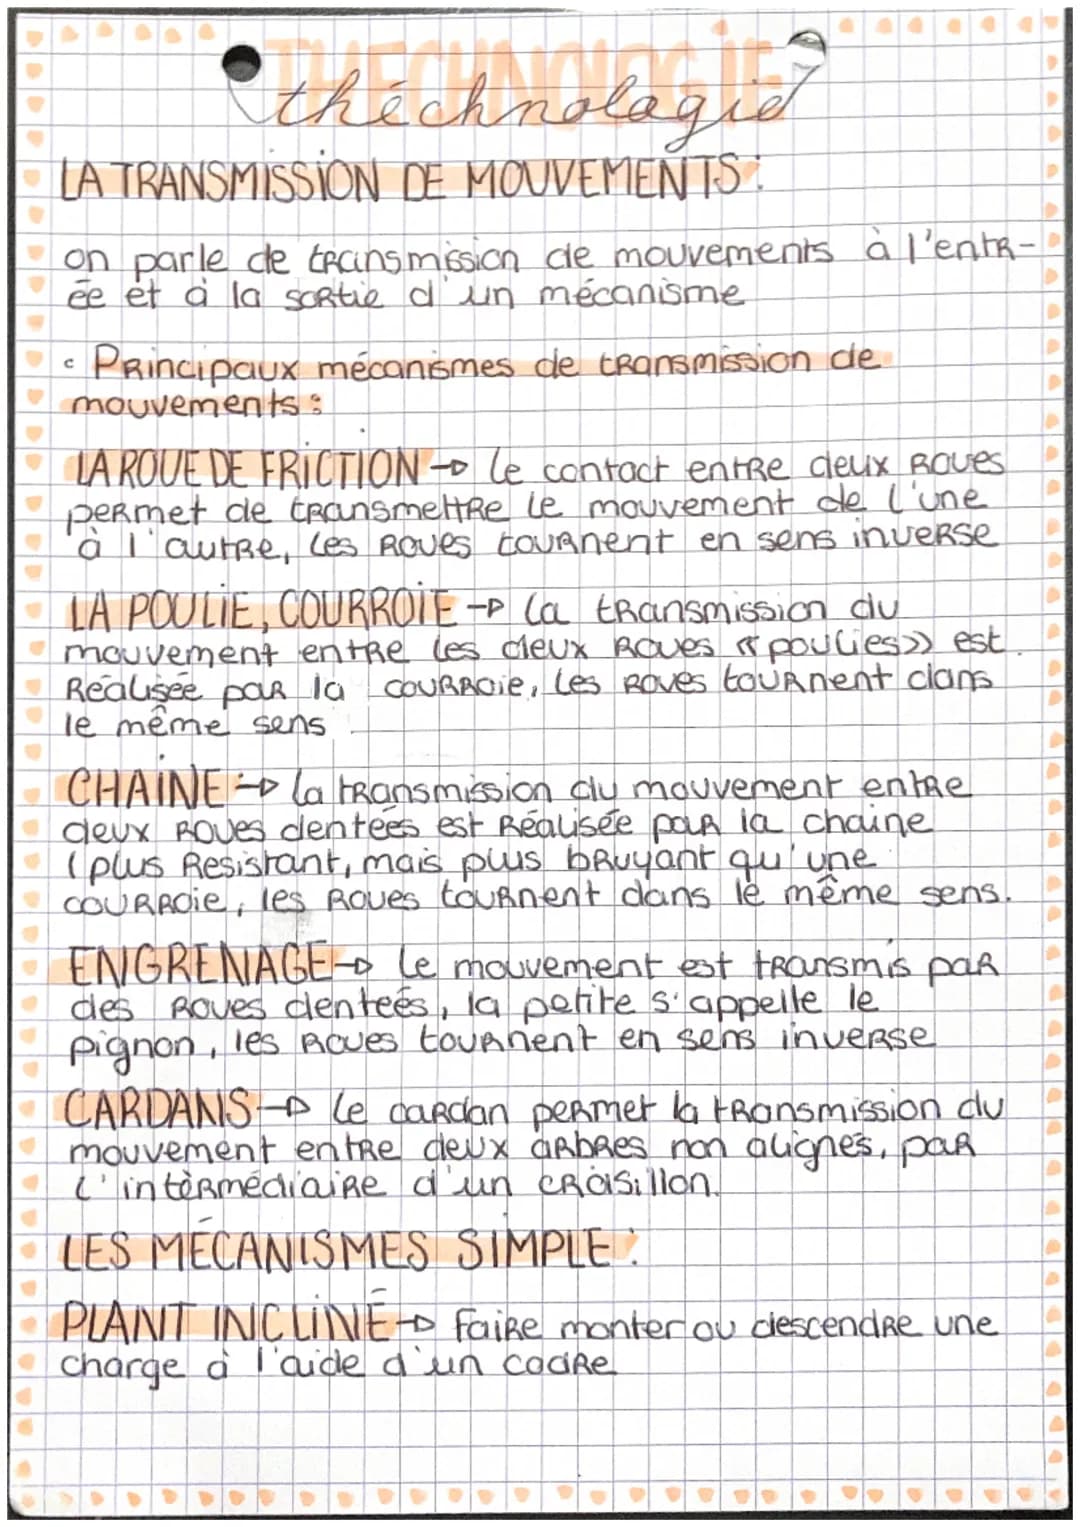 THECHNOLOGIE
théchnologie
LA TRANSMISSION DE MOUVEMENTS :
on parle de transmission de mouvements à l'entr-
ée et à la sortie d'un mécanisme
Principaux mécanismes de transmission de
mouvements :
LA ROUE DE FRICTION → le contact entre deux roues
permet de transmettre le mouvement de l'une
à l'autre, les roues tournent en sens inverse
LA POULIE, COURROIE → la transmission du
mouvement entre les deux roues « poulies » est
réalisée par la courroie, les roues tournent dans
le même sens
CHAINE → la transmission du mouvement entre
deux roues dentées est réalisée par la chaine
(plus resistant, mais plus bruyant qu'une
courroie, les roues tournent dans le même sens.
ENGRENAGE → le mouvement est transmis par
des roues dentées, la petite s'appelle le
pignon, les roues tournent en sens inverse
CARDANS → le cardan permet la transmission du
mouvement entre deux arbres non alignés, par
l'intèrmédiaire d'un croisillon.
LES MÉCANISMES SIMPLE :
PLANT INCLINÉ → faire monter ou descendre une
charge à l'aide d'un cadre